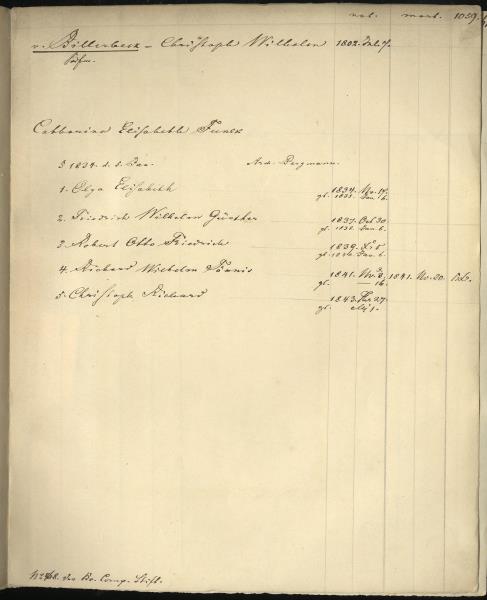 nat. mort. 1059.
v. Billerbeck - Christoph Wilhelm 1802. Jul 7.
Catharina Elisabeth Funck
1834. d. 5. Jan. And. Bergmann.
1. Olga Elisabeth 1834. Nov. 14.
gt. 1835. Jan. 6.
2. Friedrich Wilhelm Günther 1837. Oct 30.
gt. 1838. Jan. 6.
3. Robert Otto Friedrich 1839.
gt. Jan. 6.
4. Richard Wilhelm 1841. Nov. 1841. Nov. 20.
gt. — 16.
5. Christoph Richard 1843. 27.
gt.
des Bo. Comp. Stift.